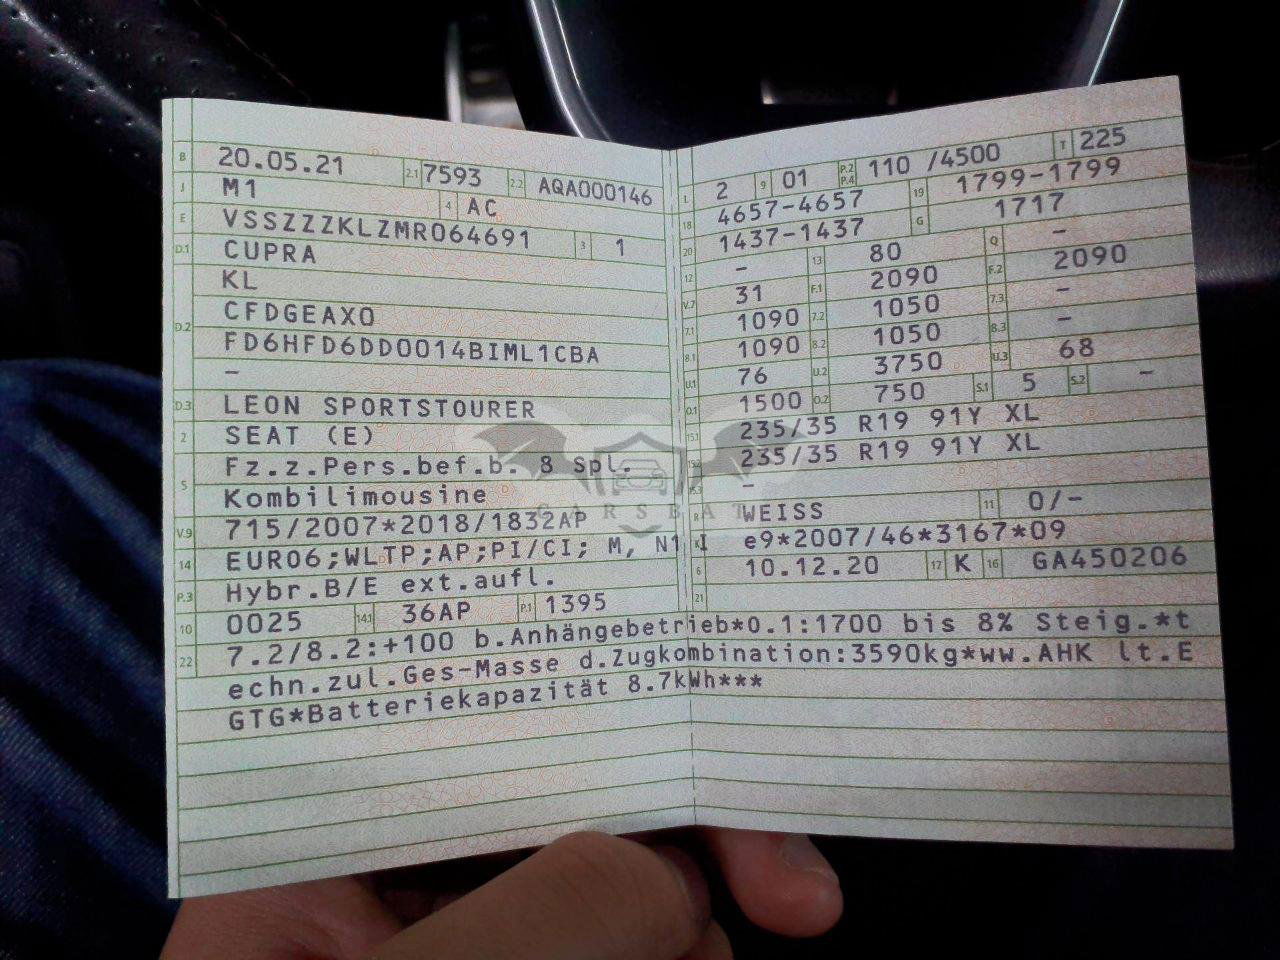 B 20.05.21 2.1 7593 2.2 AQA000146
J M1 4 AC
E VSSZZZKLZMR064691 3 1
D.1 CUPRA
KL
D.2 CFDGEAX0
FD6HFD6DD0014BIML1CBA
–
D.3 LEON SPORTSTOURER
2 SEAT (E)
5 Fz.z.Pers.bef.b. 8 Spl.
Kombilimousine
V.9 715/2007*2018/1832AP
14 EURO6;WLTP;AP;PI/CI; M, N1 I
P.3 Hybr.B/E ext.aufl.
10 0025 14.1 36AP P.1 1395
L 2 9 01 P.2 P.4 110 /4500 T 225
18 4657-4657 19 1799-1799
20 1437-1437 G 1717
12 – 13 80 Q –
V.7 31 F.1 2090 F.2 2090
7.1 1090 7.2 1050 7.3 –
8.1 1090 8.2 1050 8.3 –
U.1 76 U.2 3750 U.3 68
O.1 1500 O.2 750 S.1 5 S.2 –
15.1 235/35 R19 91Y XL
15.2 235/35 R19 91Y XL
15.3 –
R WEISS 11 0/-
K e9*2007/46*3167*09
6 10.12.20 17 K 16 GA450206
21
22 7.2/8.2:+100 b.Anhängebetrieb*0.1:1700 bis 8% Steig.*t
echn.zul.Ges-Masse d.Zugkombination:3590kg*ww.AHK lt.E
GTG*Batteriekapazität 8.7kWh***
CARSBAT